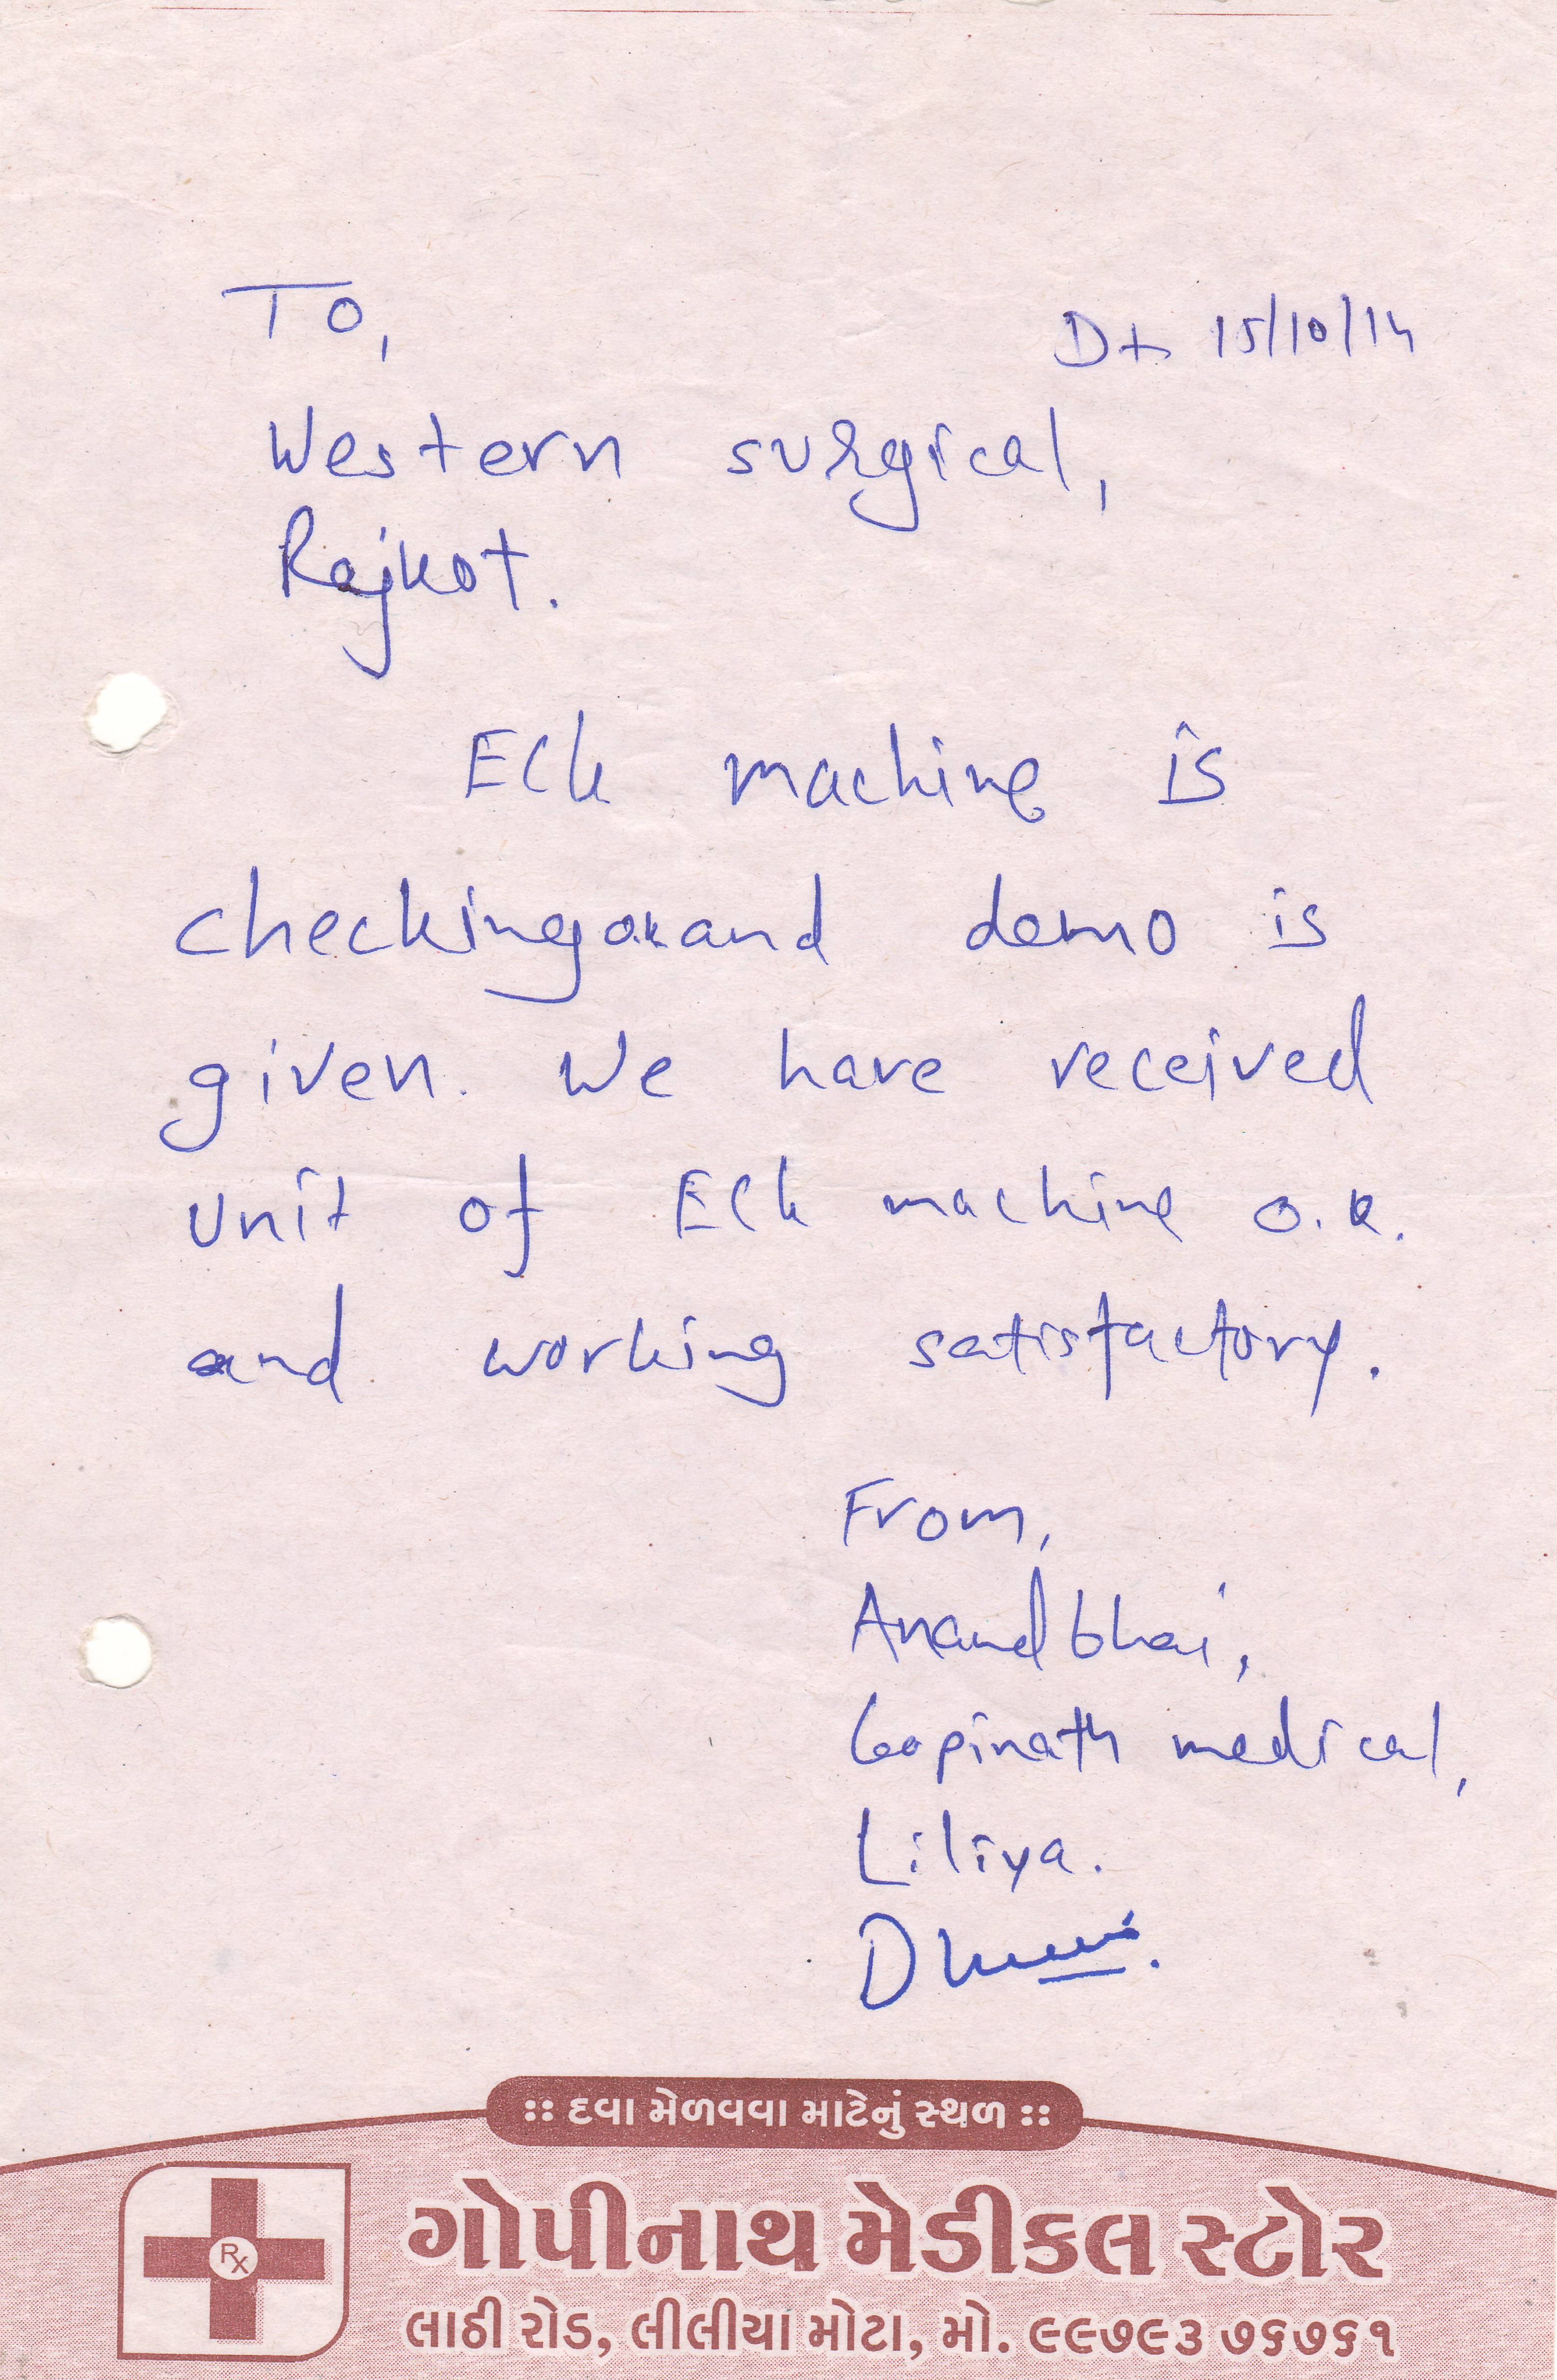 To,
Dt 15/10/14
Western surgical,
Rajkot.
ECG machine is
checking ok and demo is
given. We have received
unit of ECG machine o.k.
and working satisfactory.
From,
Anandbhai,
Gopinath medical,
Liliya.
:: દવા મેળવવા માટેનું સ્થળ ::
Rx
ગોપીનાથ મેડીકલ સ્ટોર
લાઠી રોડ, લીલીયા મોટા, મો. ૯૯૭૯૩ ૭૬૭૬૧